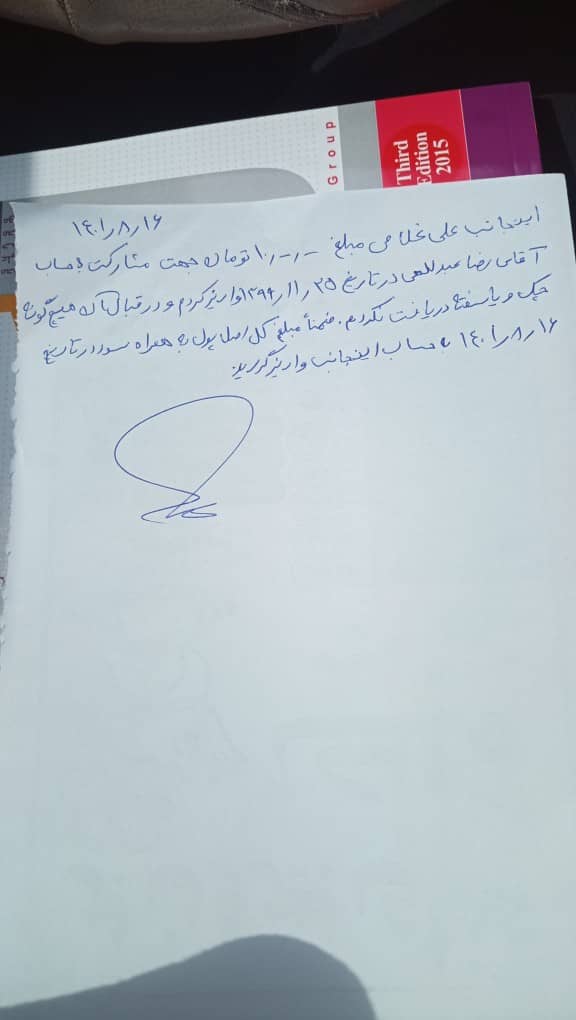 Group
Third
Edition
2015
۱۴۰۱٫۸٫۱۶
اینجانب علی غلامی مبلغ ۱۰٫۰۰۰٫۰۰۰ تومان جهت مشارکت بحساب
آقای رضا عبدللهی در تاریخ ۱۳۹۹٫۱۱٫۲۵ واریز کردم و در قبال آن هیچ گونه
چک و یا سفته دریافت نکردم. ضمناً مبلغ کل اصل پول به همراه سود در تاریخ
۱۴۰۱٫۸٫۱۶ به حساب اینجانب واریز گردید.